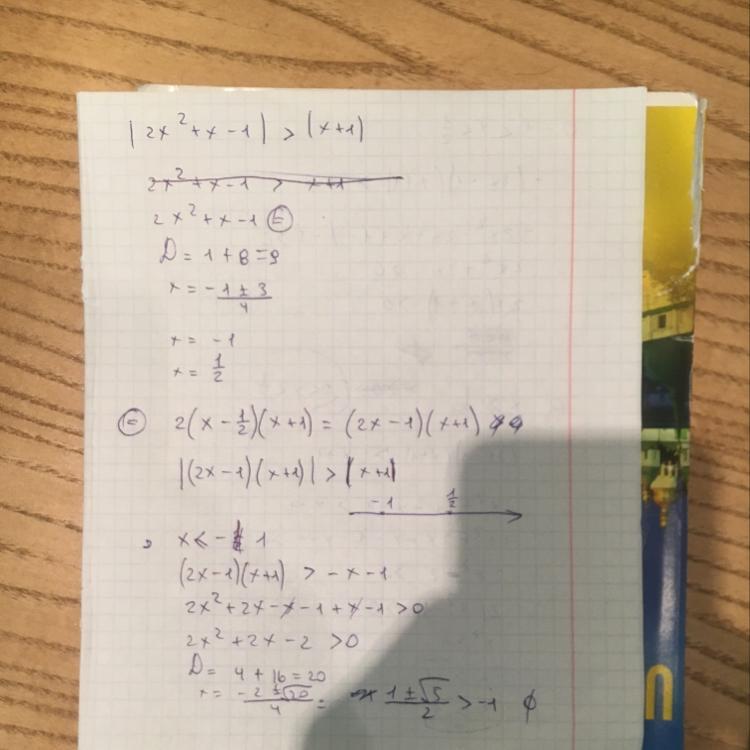 | 2x² + x - 1 | > |x+1|
2x² + x - 1 > x+1
2x² + x - 1 (=)
D = 1 + 8 = 9
x = - 1 ± 3 / 4
x = -1
x = 1/2
(=) 2(x - 1/2)(x+1) = (2x - 1)(x+1)
|(2x - 1)(x+1)| > |x+1|
-1 1/2
x < - 1
(2x-1)(x+1) > -x - 1
2x² + 2x - x - 1 + x - 1 > 0
2x² + 2x - 2 > 0
D = 4 + 16 = 20
x = -2 ± √20 / 4 = 1 ± √5 / 2 > -1 ∅
U